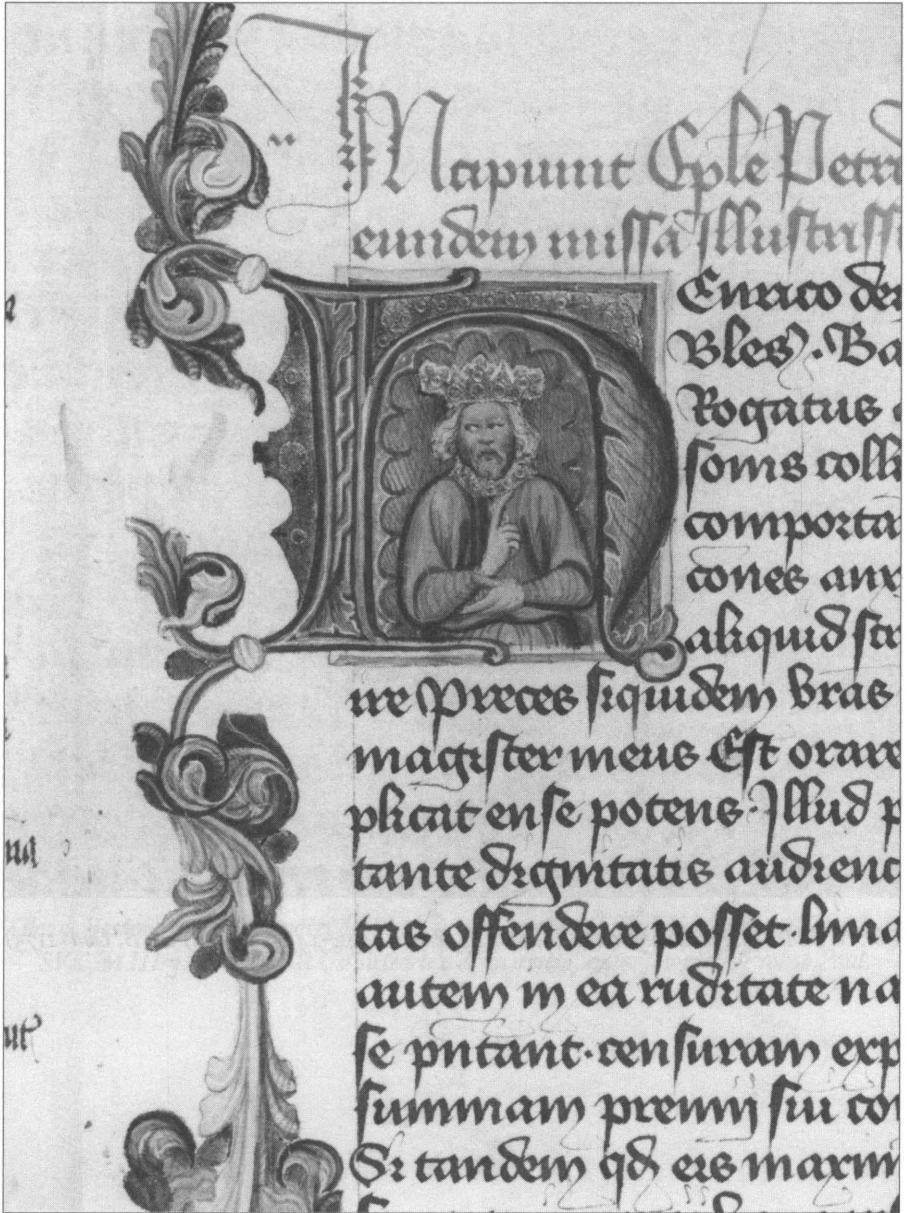 Incipiunt Eple Petri
eiusdem missa Illustriss
H
Enrico dei
Bles). Ba
Rogatus
sonis coll
comporta
cones aux
aliquid scr
ire Preces siquidem vras
magister meus Est orare
plicat ense potens. Illud p
tante dignitatis audienc
tas offendere posset. lima
autem in ea ruditate na
se putant. censuram exp
summam premij siu co
Si tandem qd eis maxim
na
ut